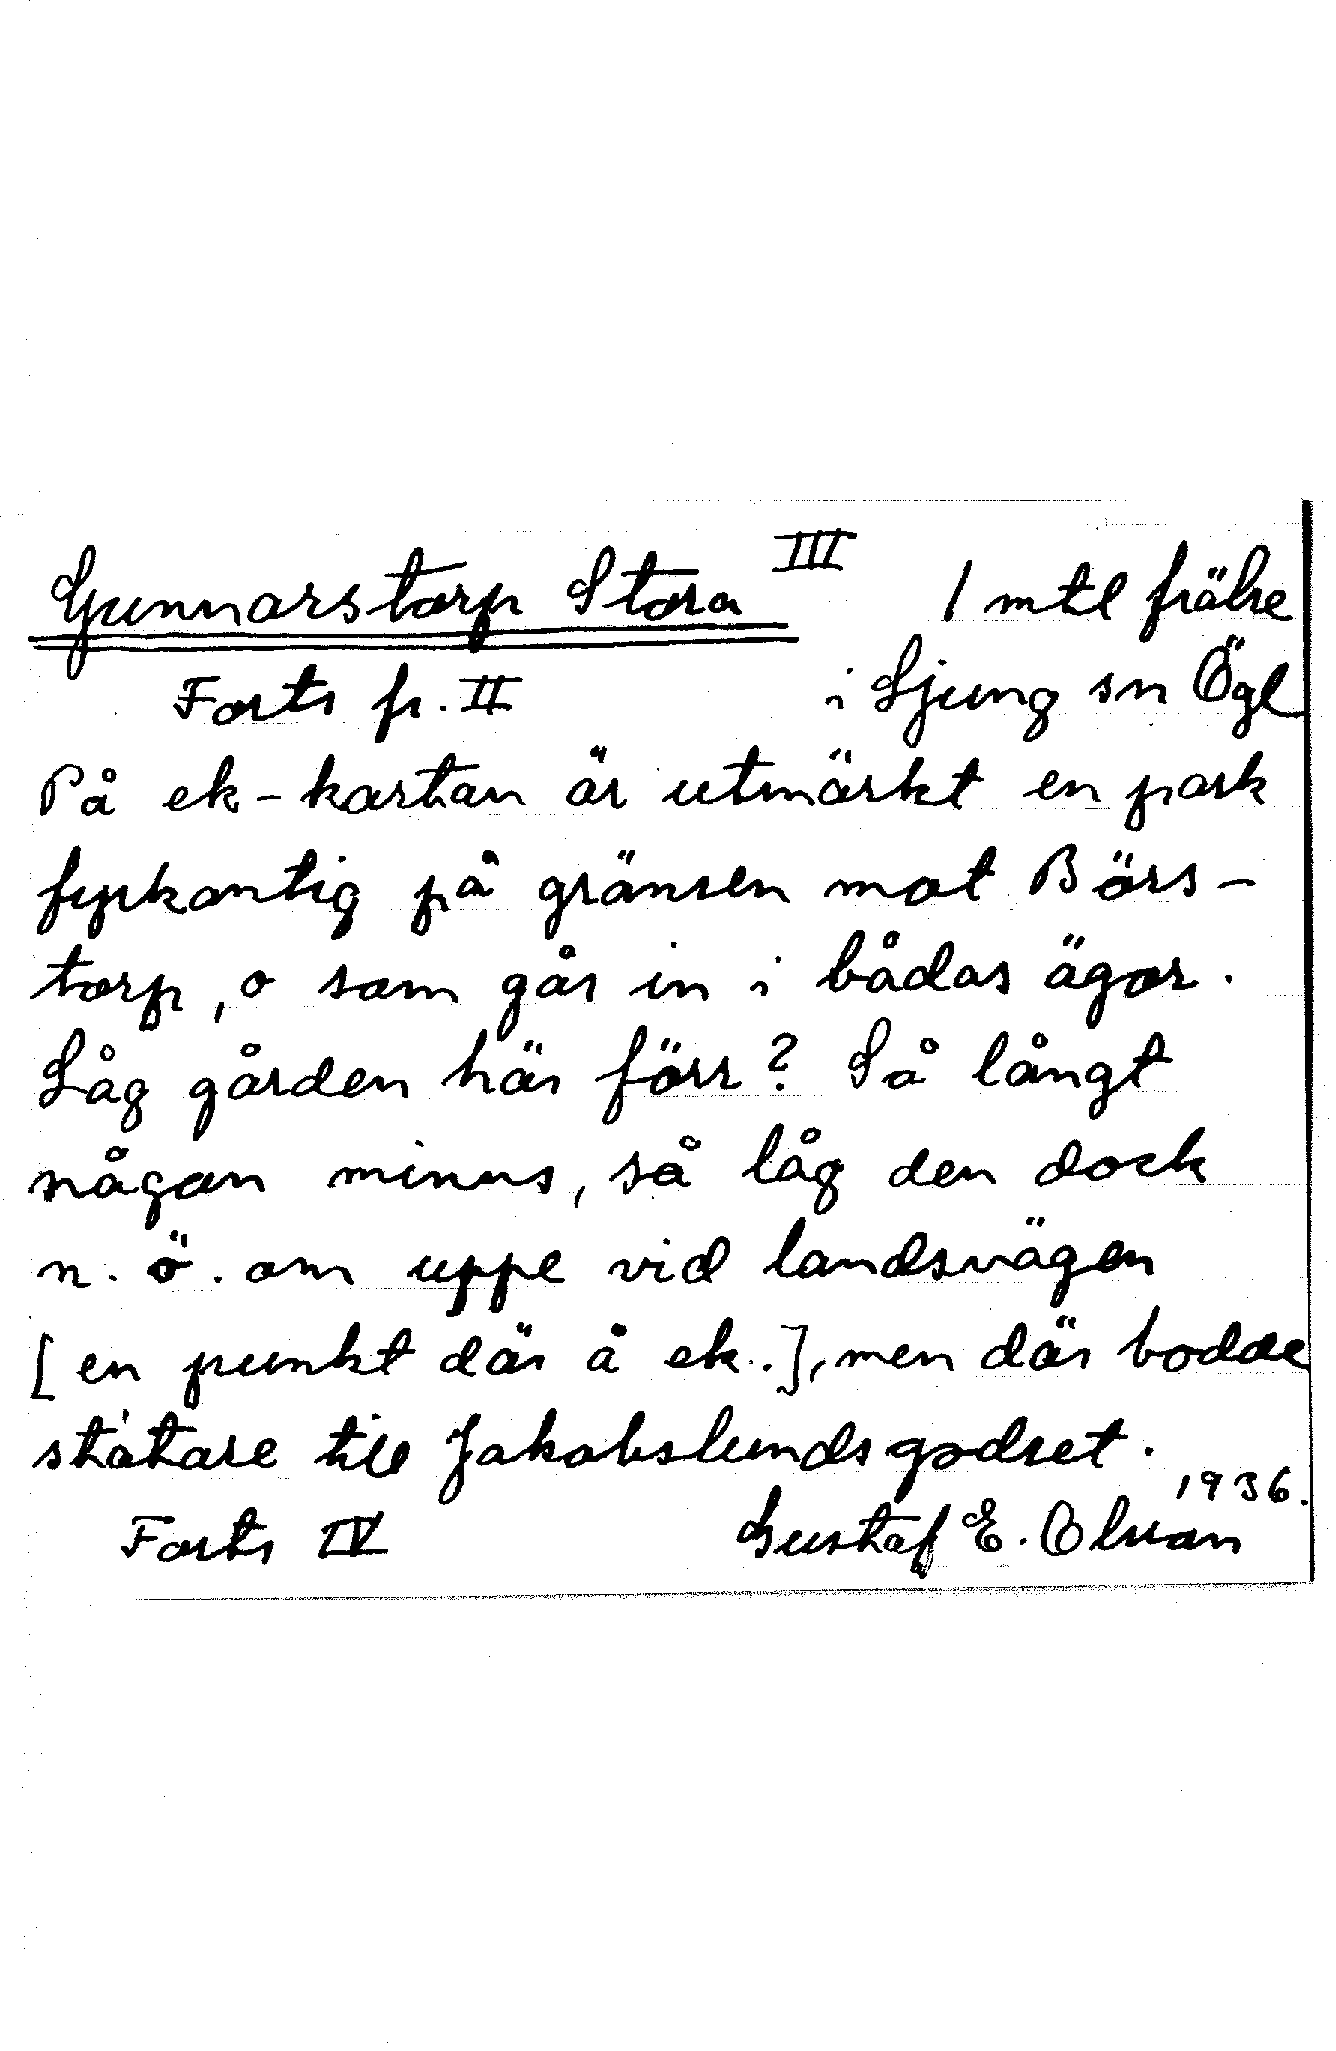 Gunnarstorp Stora III 1 mtl frälse
Forts fr. II i Ljung sn Ögl
På ek-kartan är utmärkt en park
fyrkantig på gränsen mot Börs-
torp, o som går in i bådas ägor.
Låg gården här förr? Så långt
någon minns, så låg den dock
n. ö. om uppe vid landsvägen
[en punkt där å ek..], men där bodde
statare till Jakobslundsgodset.
1936.
Forts IV Gustaf E. Olsson